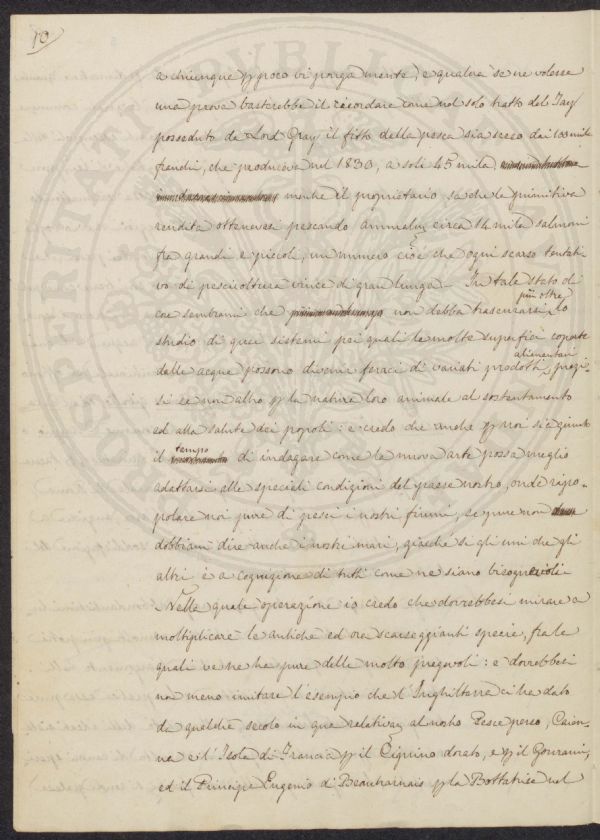 10
a chiunque p poco vi porga mente, e qualora se ne volesse
una prova basterebbe il ricordare come nel solo tratto del Tay
posseduto da Lord Gray il fitto della pesca sia sceso dai 100 mila
franchi, che produceva nel 1830, a soli 45 mila
mentre il proprietario sa che la primitiva
rendita ottenevasi pescando annualm circa 14 mila salmoni
fra grandi e piccoli, un numero cioè che ogni scarso tentati-
vo di pescicoltura vince di gran lunga. In tale stato di
cose sembrami che non debba trascurarsi più oltre lo
studio di quei sistemi pei quali le molte superfici coperte
dalle acque possono divenir feraci di variati prodotti alimentari prezi-
si se non altro p la natura loro animale al sostentamento
ed alla salute dei popoli: e credo che anche p noi sia giunto
il tempo di indagare come la nuova arte possa meglio
adattarsi alle speciali condizioni del paese nostro, onde ripo-
polare noi pure di pesci i nostri fiumi, se pure non
dobbiam dire anche i nostri mari, giacchè sì gli uni che gli
altri è a cognizione di tutti come ne siano bisognevoli.
Nelle quale operazione io credo che dovrebbesi mirare a
moltiplicare le antiche ed ora scarseggianti specie, fra le
quali ve ne ha pure delle molto pregevoli: e dovrebbesi
non meno imitare l'esempio che l'Inghilterra ci ha dato
da qualche secolo in qua relativam al nostro Pesce perso, Caien-
na e l'Isola di Francia p il Ciprino dorato, e p il Gourami,
ed il Principe Eugenio di Beauharnais p la Bottatrice nel
PROSPERITATI PUBLICAE